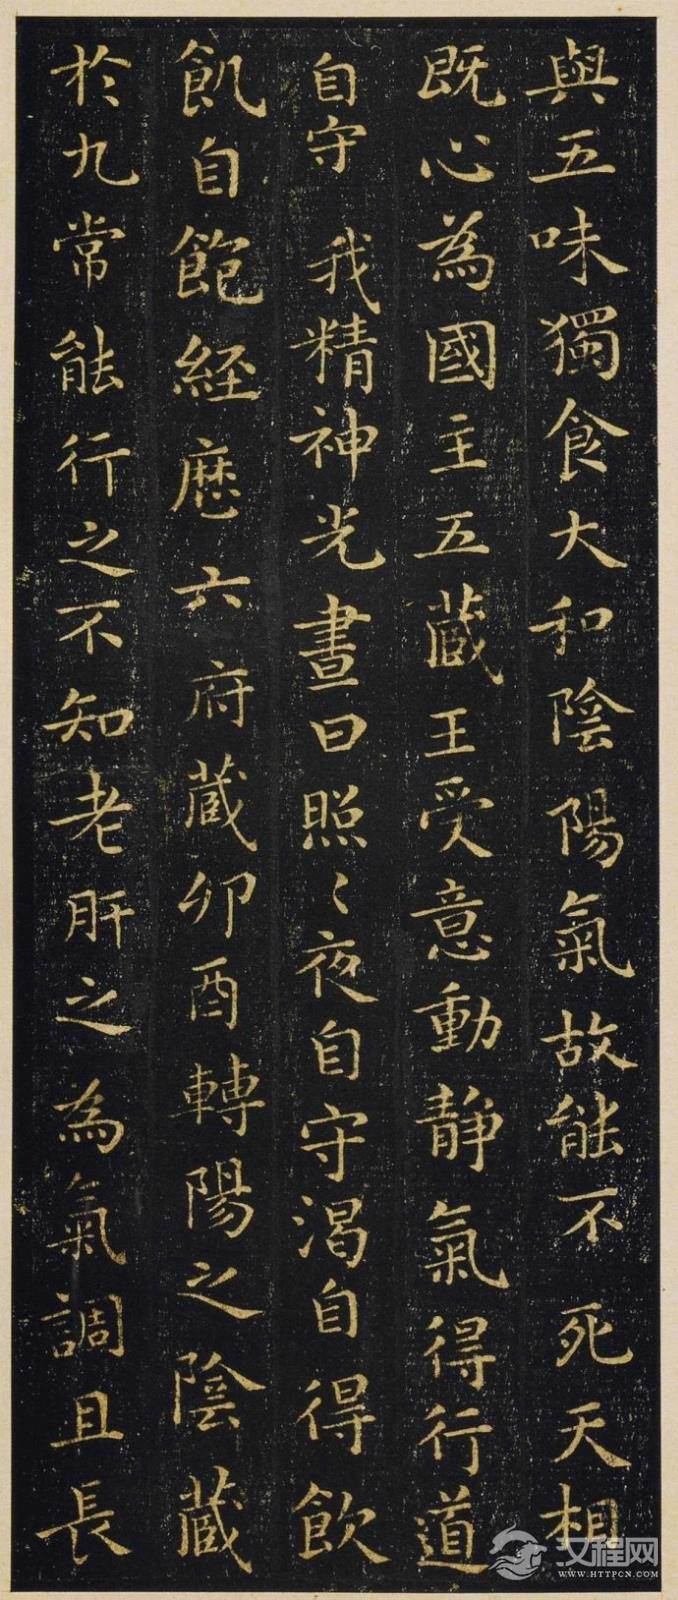 與五味獨食大和陰陽氣故能不死天相
既心為國主五蔵王受意動静氣得行道
自守我精神光晝日照〻夜自守渴自得飲
飢自飽經歷六府蔵卯酉轉陽之陰蔵
於九常能行之不知老肝之為氣調且長
汉程网
WWW.HTTPCN.COM